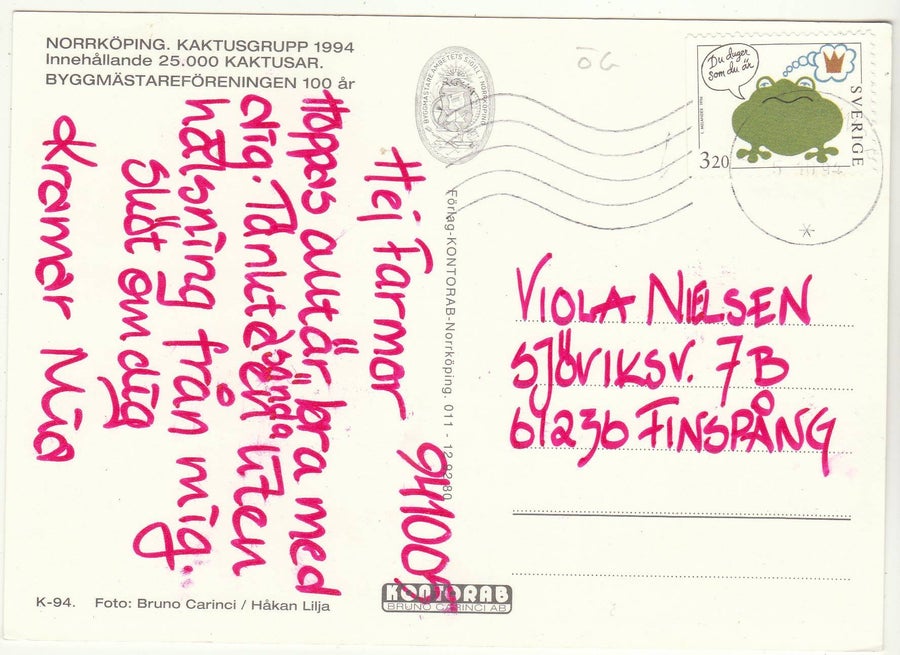 NORRKÖPING. KAKTUSGRUPP 1994
Innehållande 25.000 KAKTUSAR.
BYGGMÄSTAREFÖRENINGEN 100 år
ÖG
Du duger
som du är
SVERIGE
3.20
Hej Farmor 941005
Hoppas allt är bra med
dig. Tänkte sända en liten
hälsning från mig.
Sköt om dig
Kramar Mia
Förlag-KONTORAB-Norrköping. 011 - 12 92 80
VIOLA NIELSEN
SJÖVIKSV. 7B
61236 FINSPÅNG
K-94. Foto: Bruno Carinci / Håkan Lilja
KONTORAB
BRUNO CARINCI AB